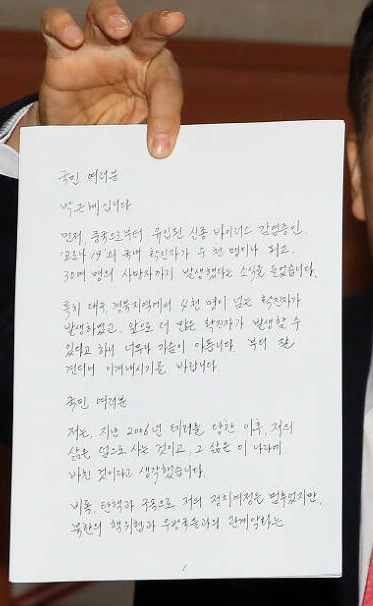 국민 여러분
박근혜입니다
먼저, 중국으로부터 유입된 신종 바이러스 감염증인.
'코로나 19'의 국내 확진자가 수 천 명이나 되고
30여 명의 사망자까지 발생했다는 소식을 들었습니다.
특히 대구, 경북지역에서 4천 명이 넘는 확진자가
발생하였고, 앞으로 더 많은 확진자가 발생할 수
있다고 하니 너무나 가슴이 아픕니다. 부디 잘
견디어 이겨내시기를, 바랍니다.
국민 여러분
저는, 지난 2006년 테러를 당한 이후, 저의
삶은 덤으로 사는 것이고, 그 삶은 이 나라에
바친 것이라고 생각했습니다.
비록, 탄핵과 구속으로 저의 정치여정은 멈추었지만,
북한의 핵위협과 우방국들과의 관계악화는
1